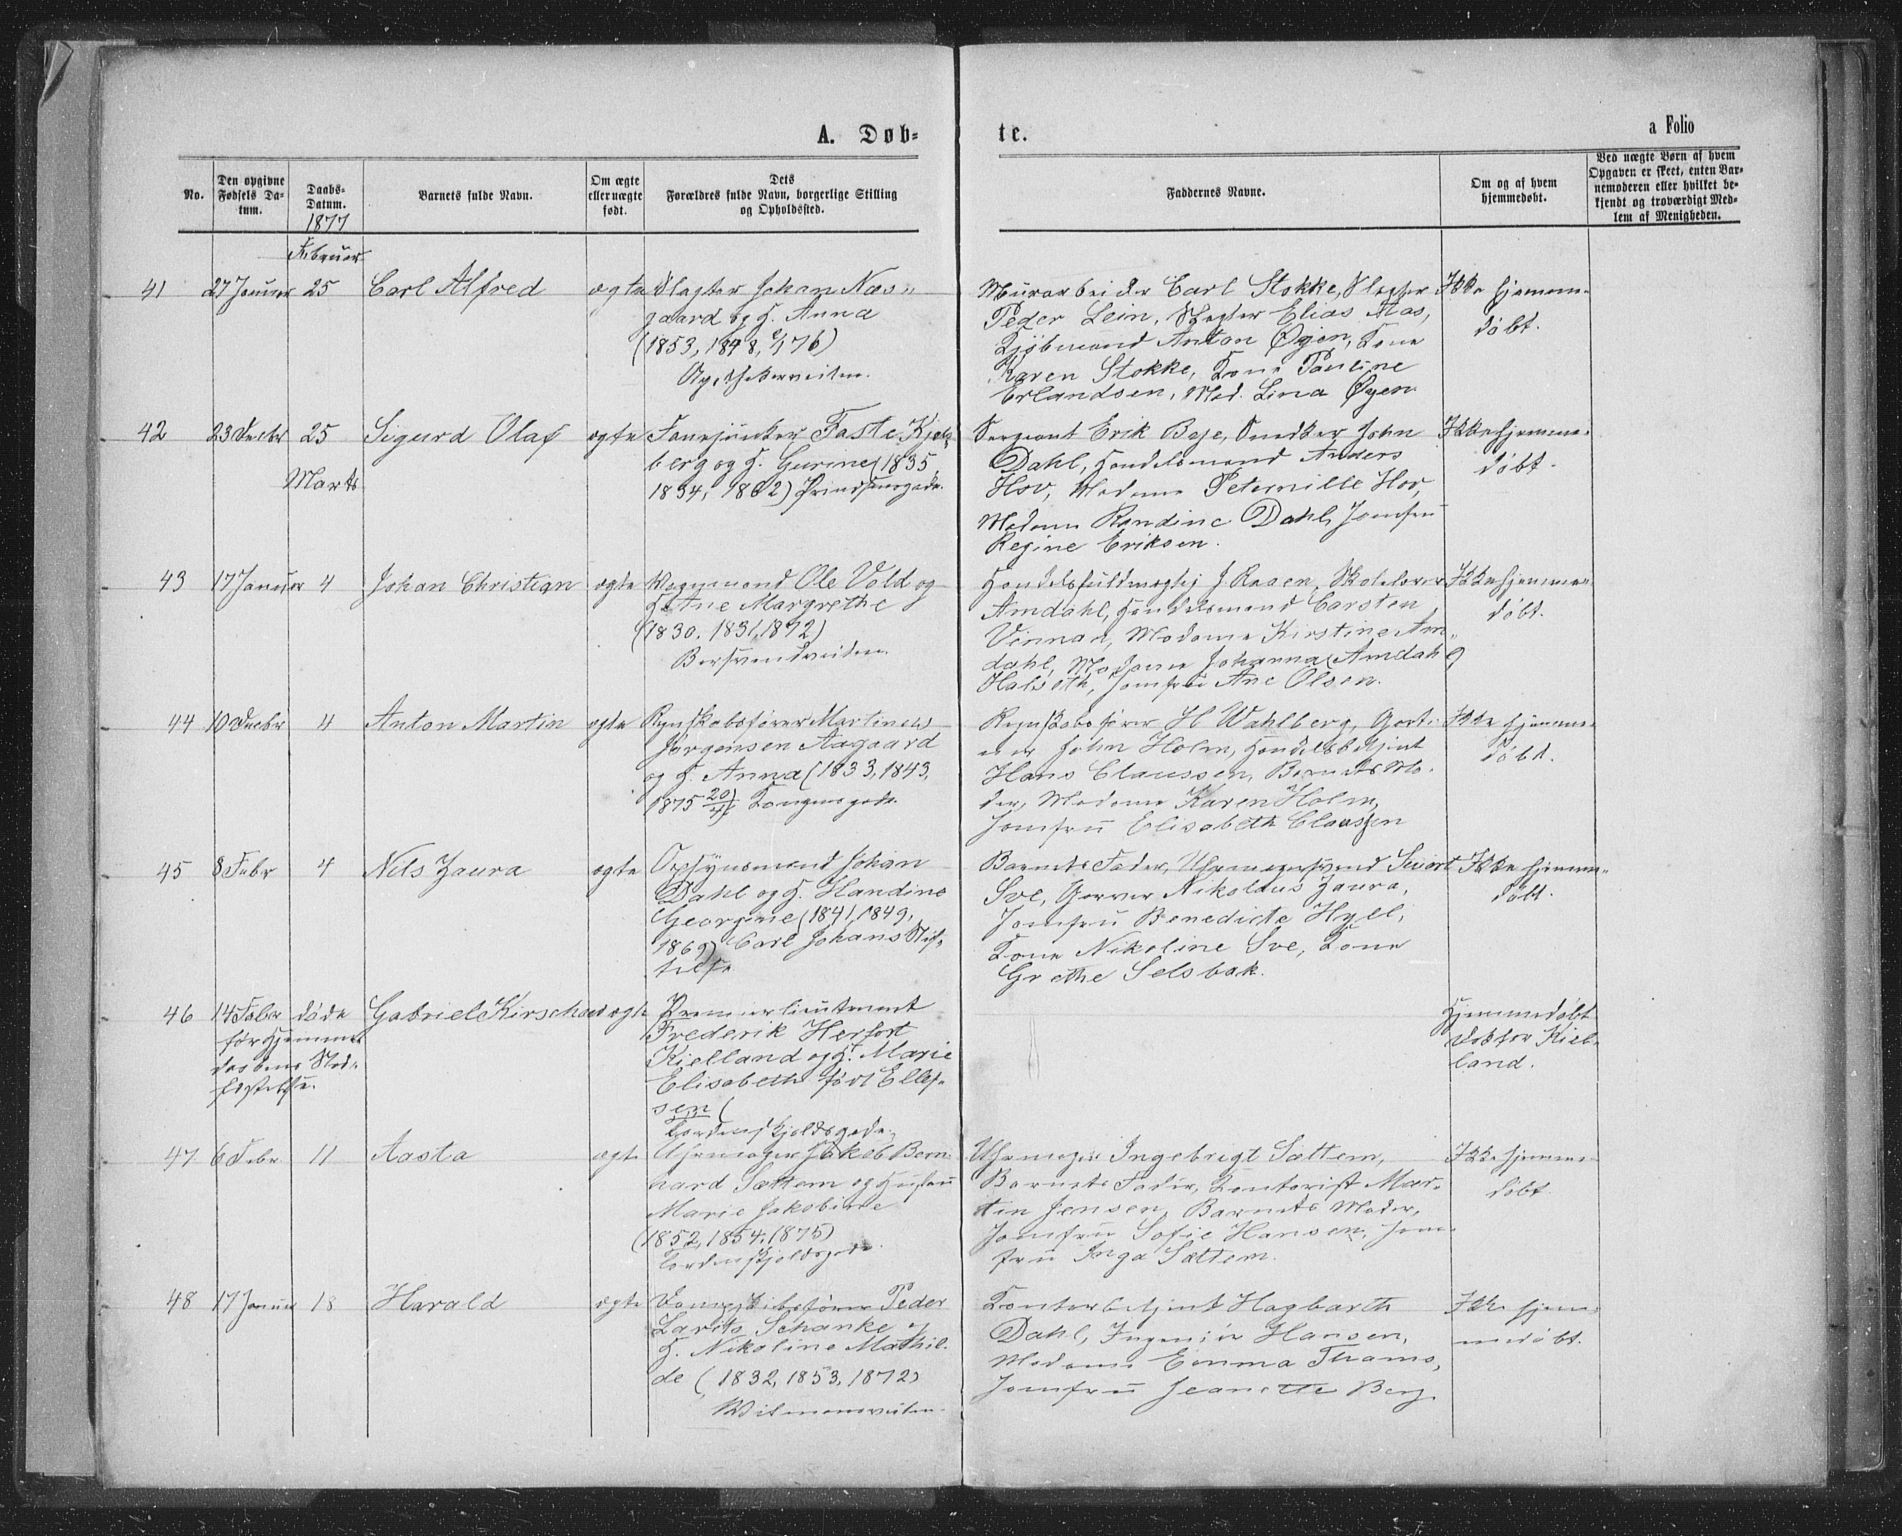 A. Døb=
te.
a Folio
No.
Den opgivne
Fødsels Da=
tum.
Daabs=
Datum.
1877
Barnets fulde Navn.
Om ægte
eller uægte
født.
Dets
Forældres fulde Navn, borgerlige Stilling
og Opholdssted.
Faddernes Navne.
Om og af hvem
hjemmedøbt.
Ved uægte Børn af hvem
Opgaven er skeet, enten Bar=
nemoderen eller hvilket be=
kjendt og troværdigt Med=
lem af Menigheden.
Februar
41 27 Januar 25 Carl Alfred ægte Slagter Johan Næs=
gaard og H. Anna
(1853, 1848, 76)
Apothekerveiten.
Murarbeider Carl Stokke, Slagter
Peder Lein, Slagter Elias Aas,
Kjøbmand Anton Øyen, Kone
Karen Stokke, Kone Pauline
Erlandsen, Mad. Lina Øyen
Ikke hjemme=
døbt.
42 23 Decbr 25 Sigurd Olaf ægte Fanejunker Faste Kjels
berg og H. Gurine (1835,
1834, 1862) Prindsensgade.
Sergeant Erik Boje, Snedker John
Dahl, Handelsmand Anders
Hov, Madame Peternille Hov,
Madame Randine Dahl, Jomfru
Regine Eriksen.
Ikke hjemme=
døbt.
Marts
43 17 Januar 4 Johan Christian ægte Vognmand Ole Vold og
H. Ane Margrethe
(1830, 1831, 1872)
Bersvendveiten.
Handelsfuldmægtig J. Raaen, Skolelærer
Amdahl, Handelsmand Carsten
Vinnan, Madame Kirstine Am=
dahl, Madame Johanna Amdahl,
Halseth, Jomfru Ane Olsen.
Ikke hjemme=
døbt.
44 10 Decbr 4 Anton Martin ægte Regnskabsfører Martinius
Jørgensen Aagaard
og H. Anna (1833, 1843,
1875 20/4) Kongensgade.
Regnskabsfører H Wahlberg, Gart=
ner John Holm, Handelsbetjent
Hans Claussen, Barnets Mo=
der, Madame Karen Holm,
Jomfru Elisabeth Claussen
Ikke hjemme=
døbt.
45 8 Febr 4 Nils Zaura ægte Opsynsmand Johan
Dahl og H. Handine
Georgine (1841, 1849,
1869) Carl Johans Stif=
telse
Barnets Fader, Uhrmagersvend Sivert
Sve, Garver Nikolaus Zaura,
Jomfru Benedicte Hyel,
Kone Nikoline Sve, Kone
Grethe Selsbak.
Ikke hjemme=
døbt.
46 14 Febr døde Gabriel Kirschow ægte Premierlieutenant
før Hjemme
daabens Stad=
fæstelse.
Frederik Herfort
Kielland og H. Marie
Elisabeth født Ellef=
sen (
Tordenskjoldsgade.
Hjemmedøbt
Doktor Kiel=
land.
47 6 Febr 11 Aasta ægte Uhrmager Jakob Bern
hard Sættem og Hustru
Marie Jakobine
(1852, 1854, 1875)
Tordenskjoldsgade.
Uhrmager Ingebrigt Sættem,
Barnets Fader, Kontorist Mar=
tin Jensen, Barnets Moder,
Jomfru Sofie Hansen, Jom=
fru Inga Sættem.
Ikke hjemme=
døbt
48 17 Januar 18 Harald ægte Dampskibsfører Peder
Lorits Schanke og
H. Nikoline Mathil=
de (1832, 1853, 1872)
Kontorbetjent Hagbarth
Dahl, Ingeniør Hansen,
Madame Emma Thams,
Jomfru Jeanette Berg.
Ikke hjem=
medøbt.